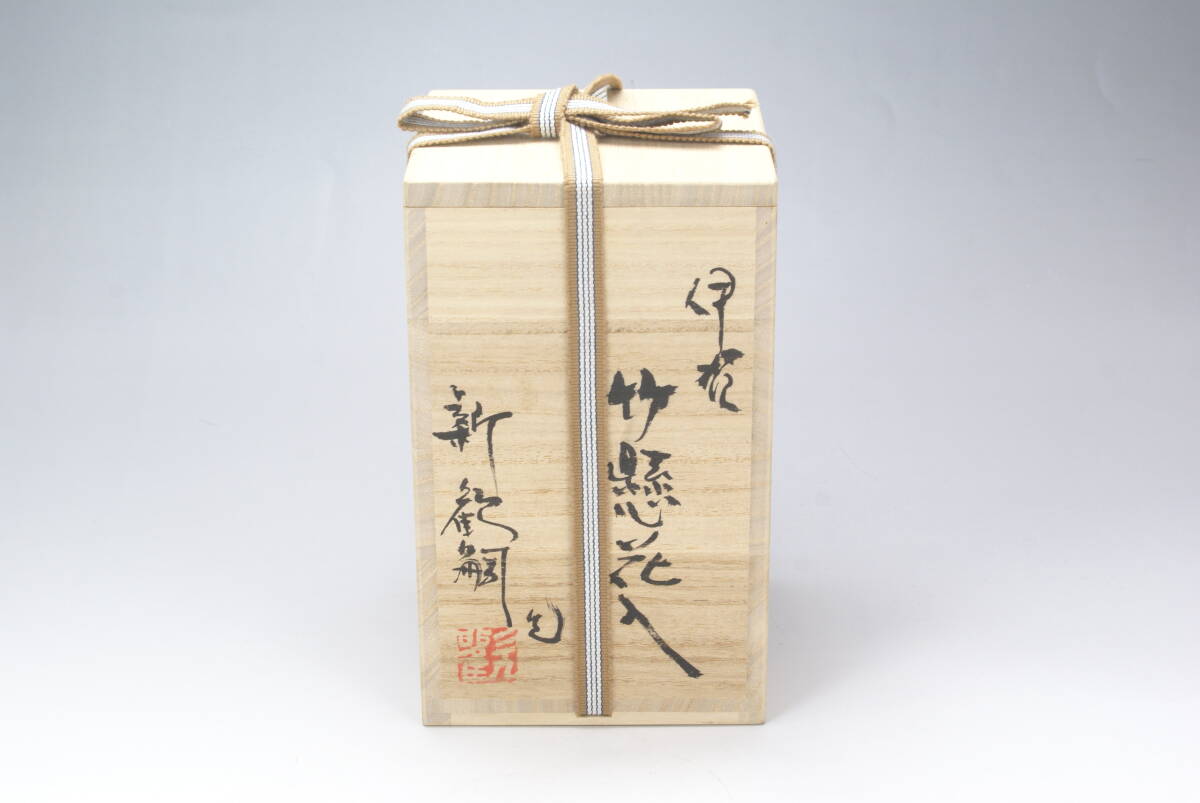 伊賀
竹懸花入
新 歓嗣 造